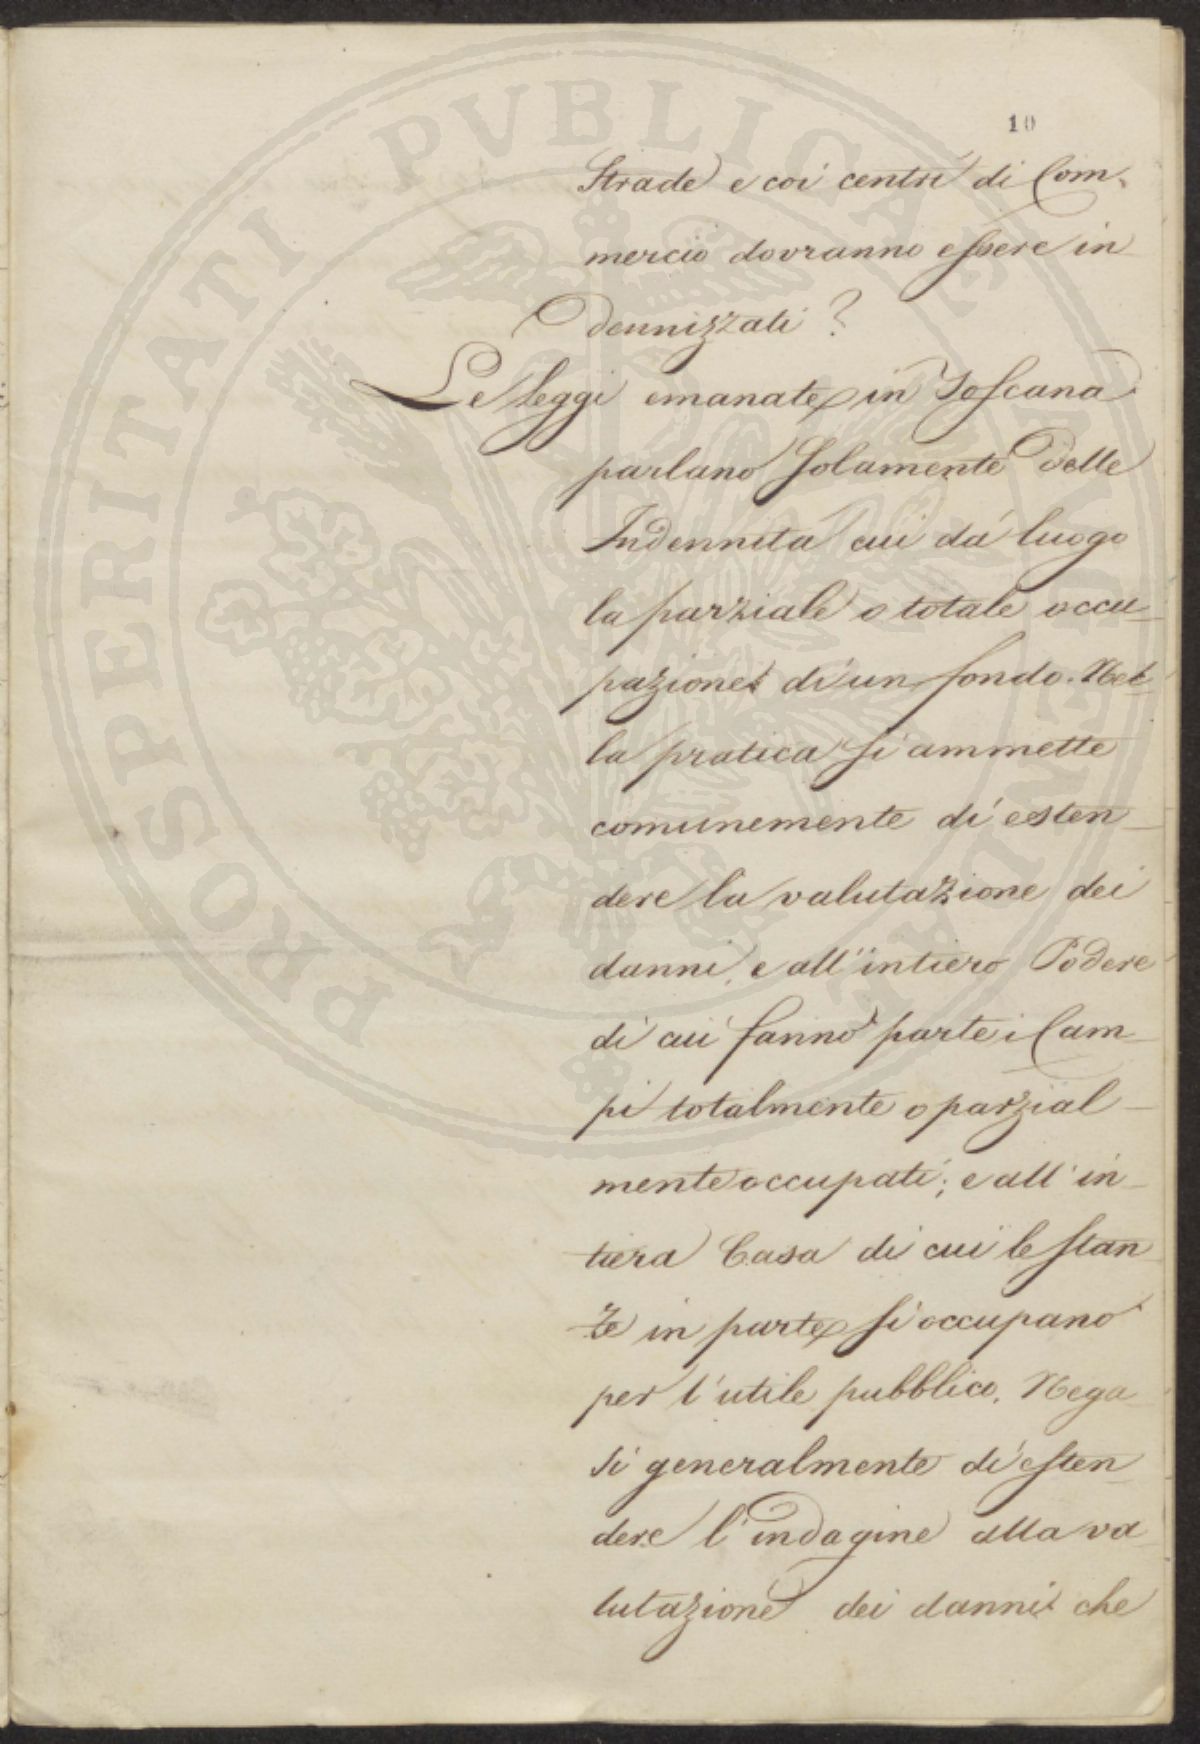 PROSPERITATI PVBLICAE AVGENDAE
10
Strade e coi centri di Com-
mercio dovranno essere in
dennizzati?
Le Leggi emanate in Toscana
parlano solamente delle
Indennità cui dà luogo
la parziale o totale occu-
pazione di un fondo. Nel-
la pratica si ammette
comunemente di esten-
dere la valutazione dei
danni, e all'intiero Podere
di cui fanno parte i Cam-
pi totalmente o parzial-
mente occupati; e all'in-
tiera Casa di cui le stan
ze in parte si occupano
per l'utile pubblico. Nega
si generalmente di esten
dere l'indagine alla va
lutazione dei danni che